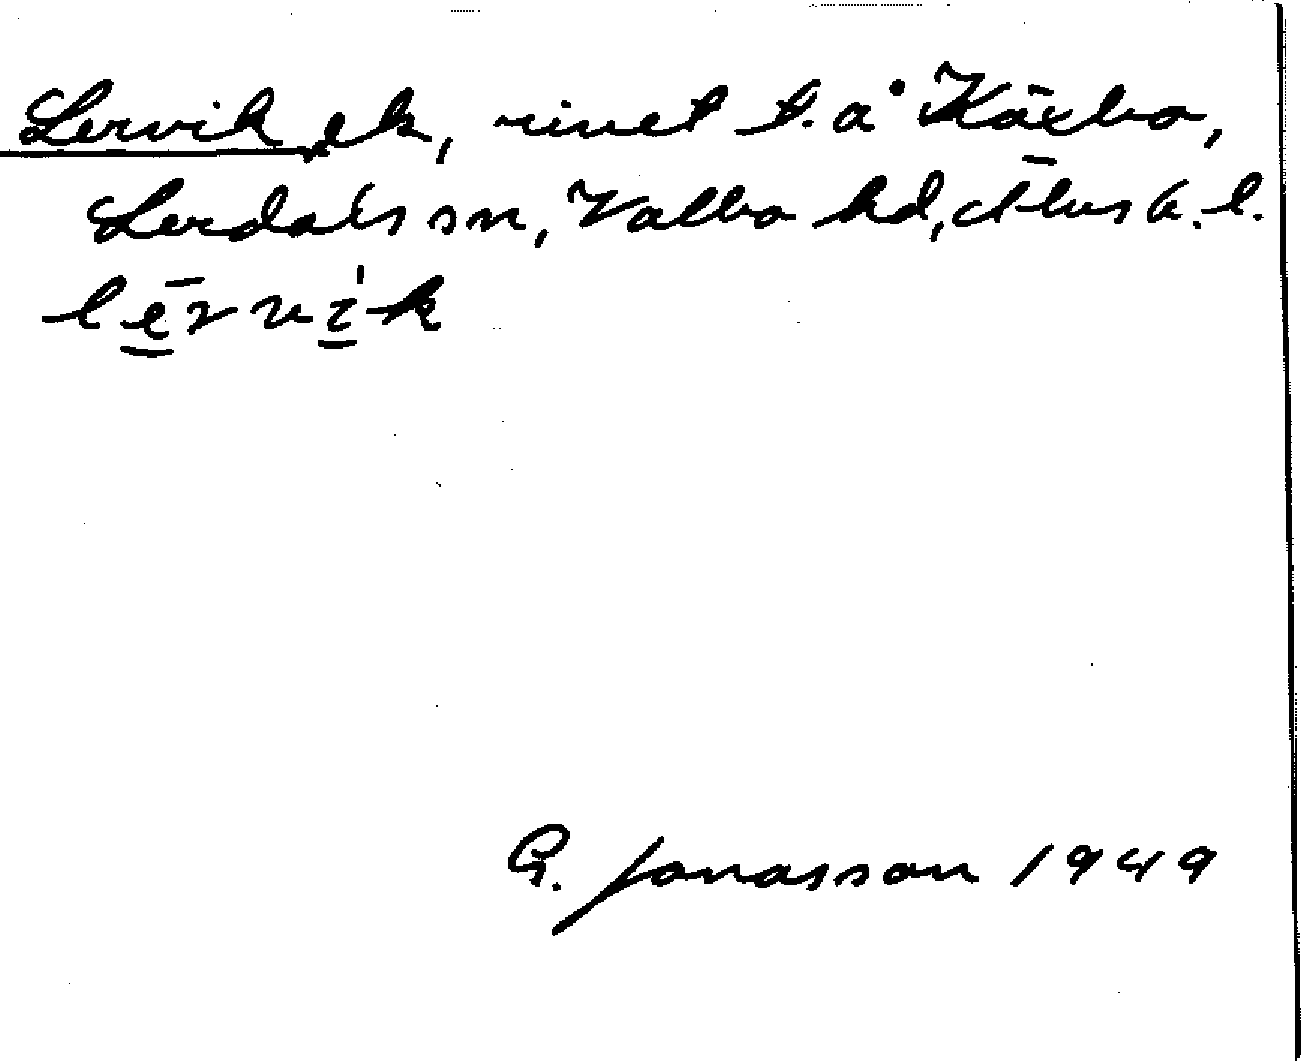 Lervik, ek, rivet t. å Käxbo,
Lerdals sn, Valbo hd, Älvsb. l.
lērvi'k
G. Jonasson 1949